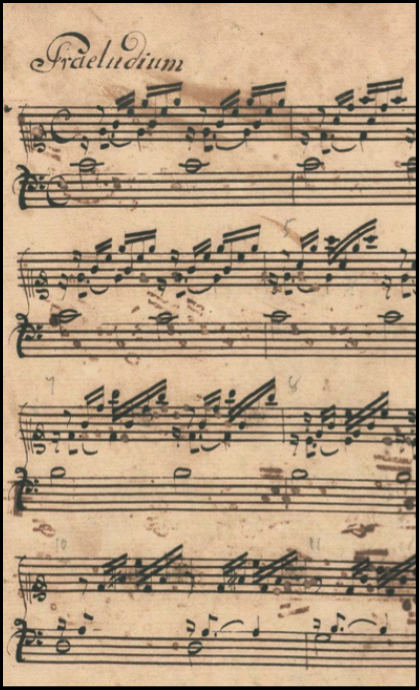 Praeludium
5
7
8
10
11